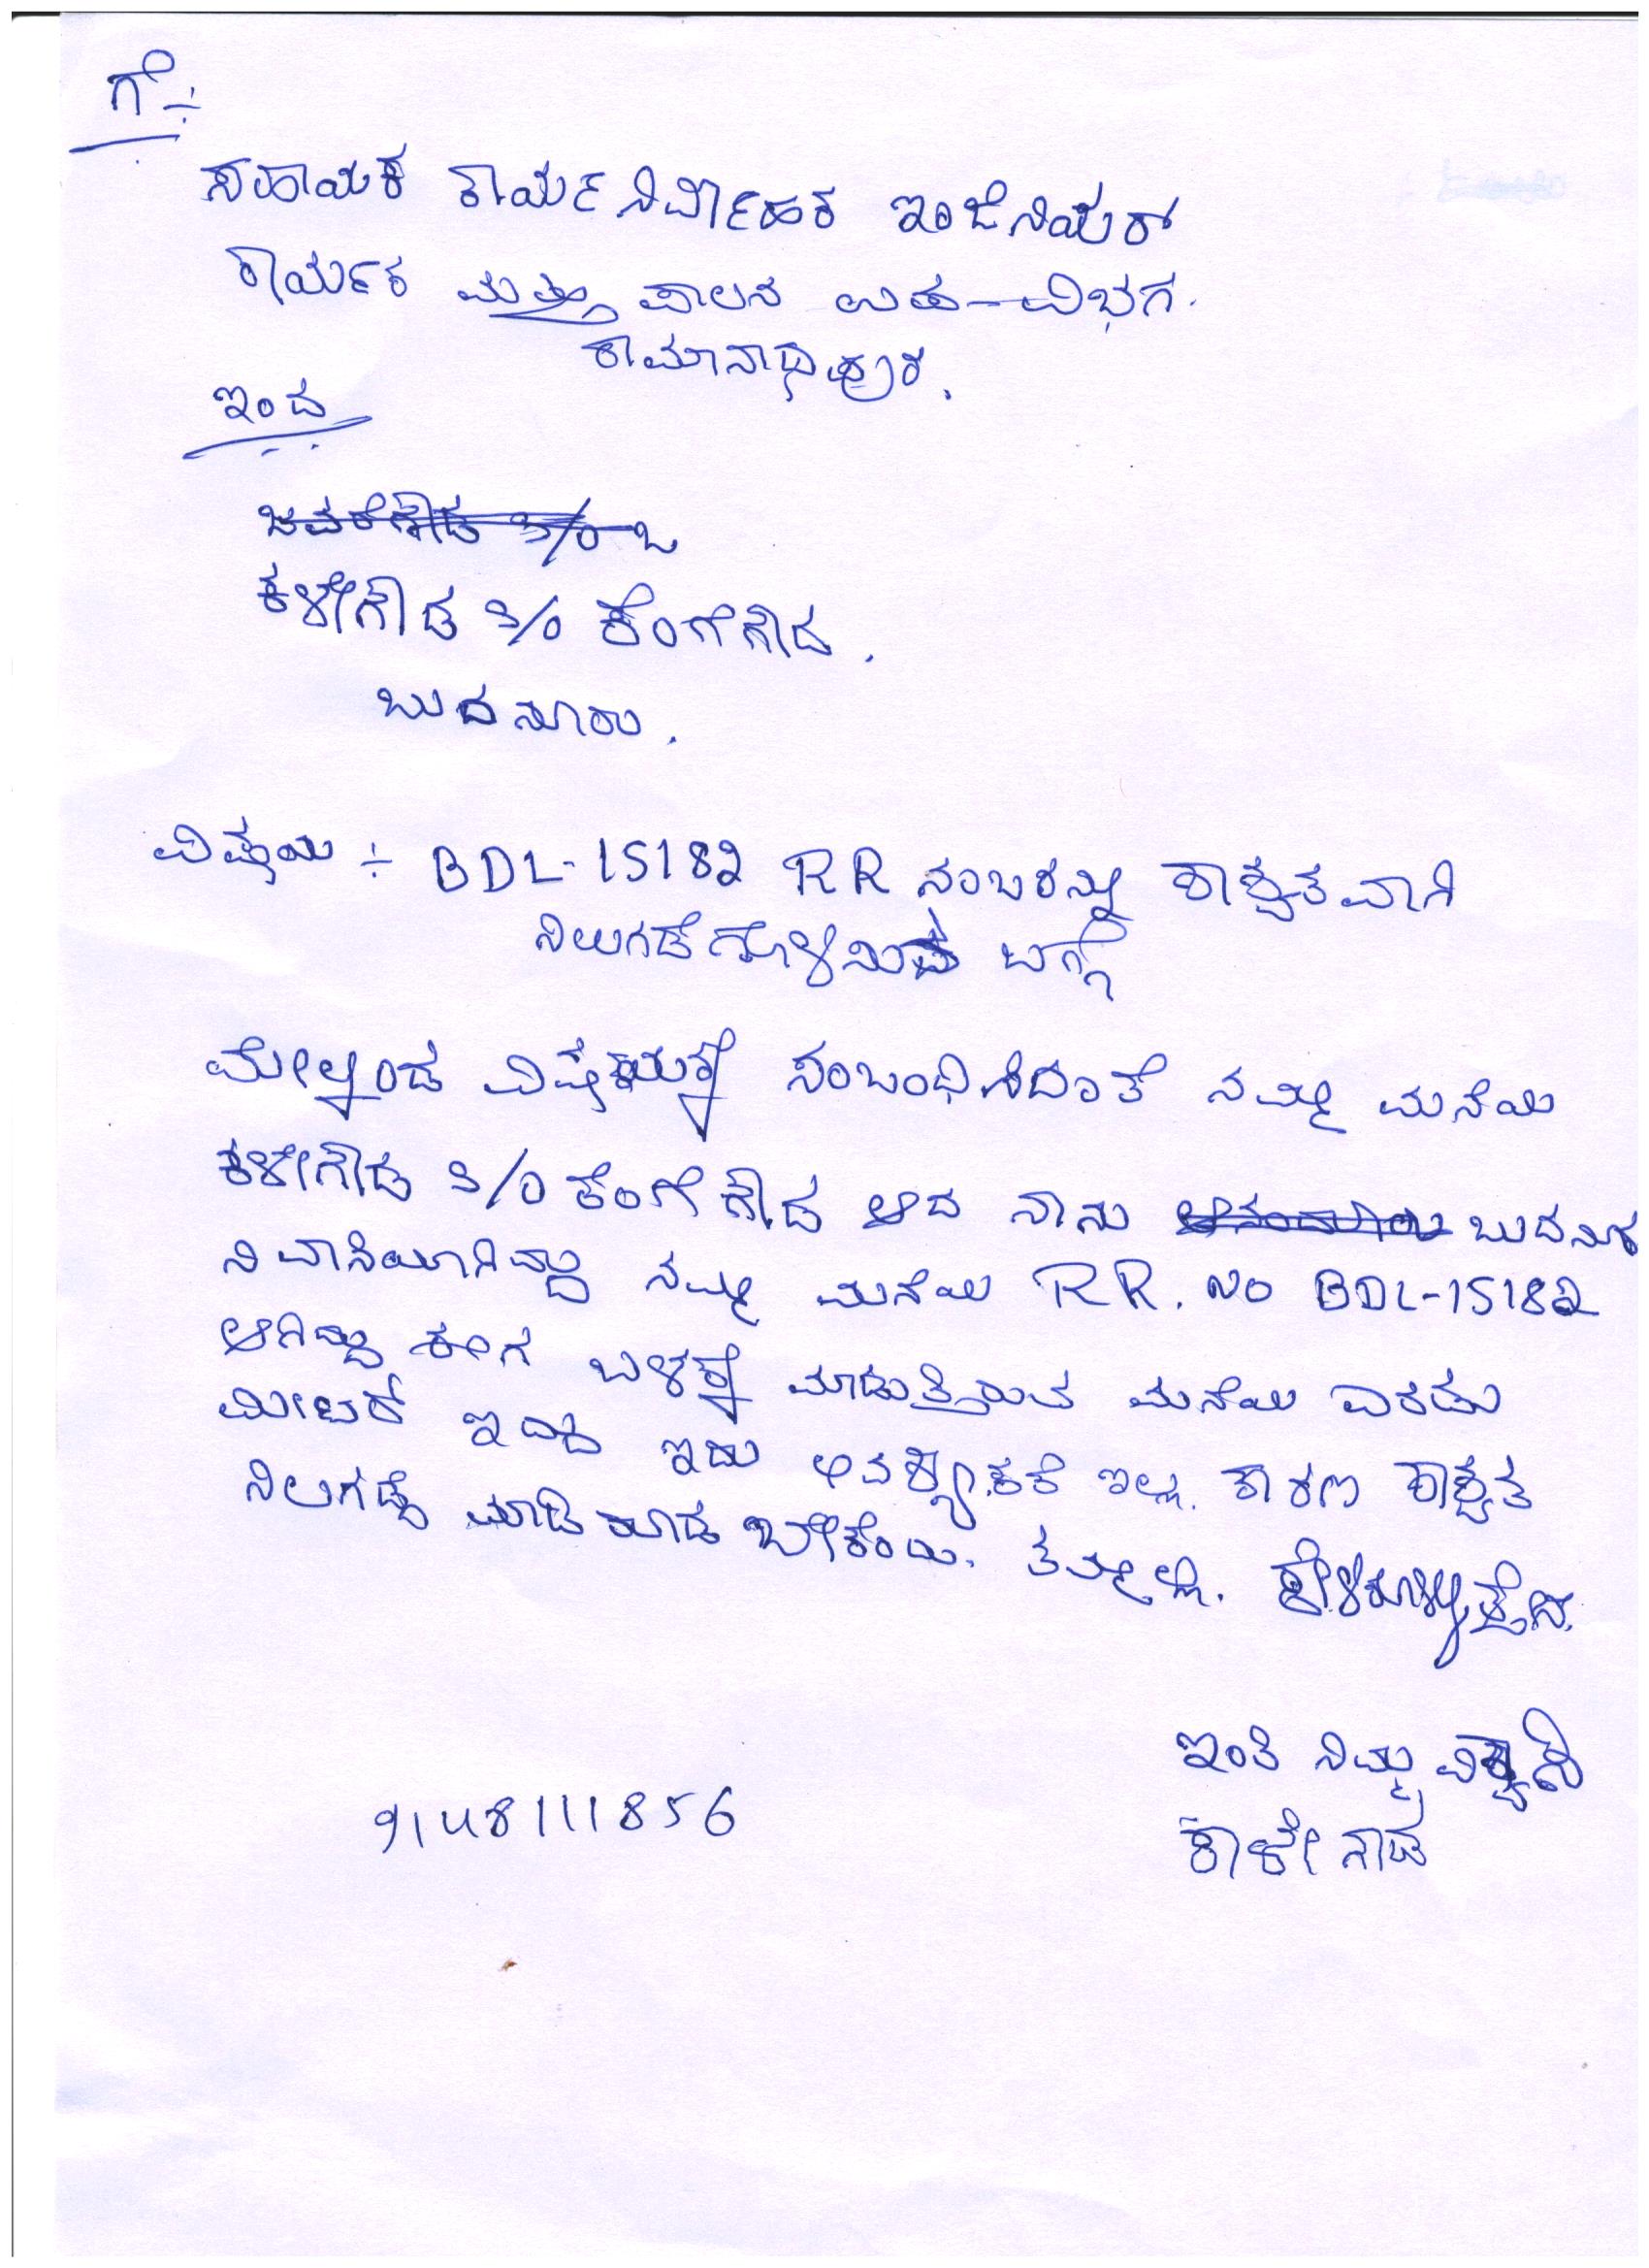 ಗೆ ÷
ಸಹಾಯಕ ಕಾರ್ಯನಿರ್ವಾಹಕ ಇಂಜಿನಿಯರ್
ಕಾರ್ಯಕ ಮತ್ತು ಪಾಲನ ಉಪ-ವಿಭಗ.
ರಾಮಾನಾಥಪುರ.
ಇಂದ
ಕಳೇಗೌಡ S/o ಕೆಂಗೆಗೌಡ.
ಬುದನೂರು.
ವಿಷ್ಯಯ ÷ BDL-15182 RR ನಂಬರನ್ನು ಶಾಶ್ವತವಾಗಿ
ನಿಲುಗಡೆಗೊಳಿಸುವ ಬಗ್ಗೆ
ಮೇಲ್ಕಂಡ ವಿಷಯಕ್ಕೆ ಸಂಬಂಧಿಸಿದಂತೆ ನಮ್ಮ ಮನೆಯ
ಕಳೇಗೌಡ S/o ಕೆಂಗೆಗೌಡ ಆದ ನಾನು ಬುದನೂರ
ನಿವಾಸಿಯಾಗಿದ್ದು ನಮ್ಮ ಮನೆಯ RR. No BDL-15182
ಆಗಿದ್ದು ಈಗ ಬಳಕೆ ಮಾಡುತ್ತಿರುವ ಮನೆಯ ಎರಡು
ಮೀಟರ್ ಇದ್ದು ಇದು ಅವಶ್ಯಕತೆ ಇಲ್ಲ. ಕಾರಣ ಶಾಶ್ವತ
ನಿಲುಗಡೆ ಮಾಡಿ ಕೂಡ ಬೇಕೆಂದು. ತಮ್ಮಲ್ಲಿ. ಕೇಳಿಕೊಳ್ಳುತ್ತೇನೆ.
ಇಂತಿ ನಿಮ್ಮ ವಿಶ್ವಾಸಿ
9148111856
ಕಾಳೇಗೌಡ